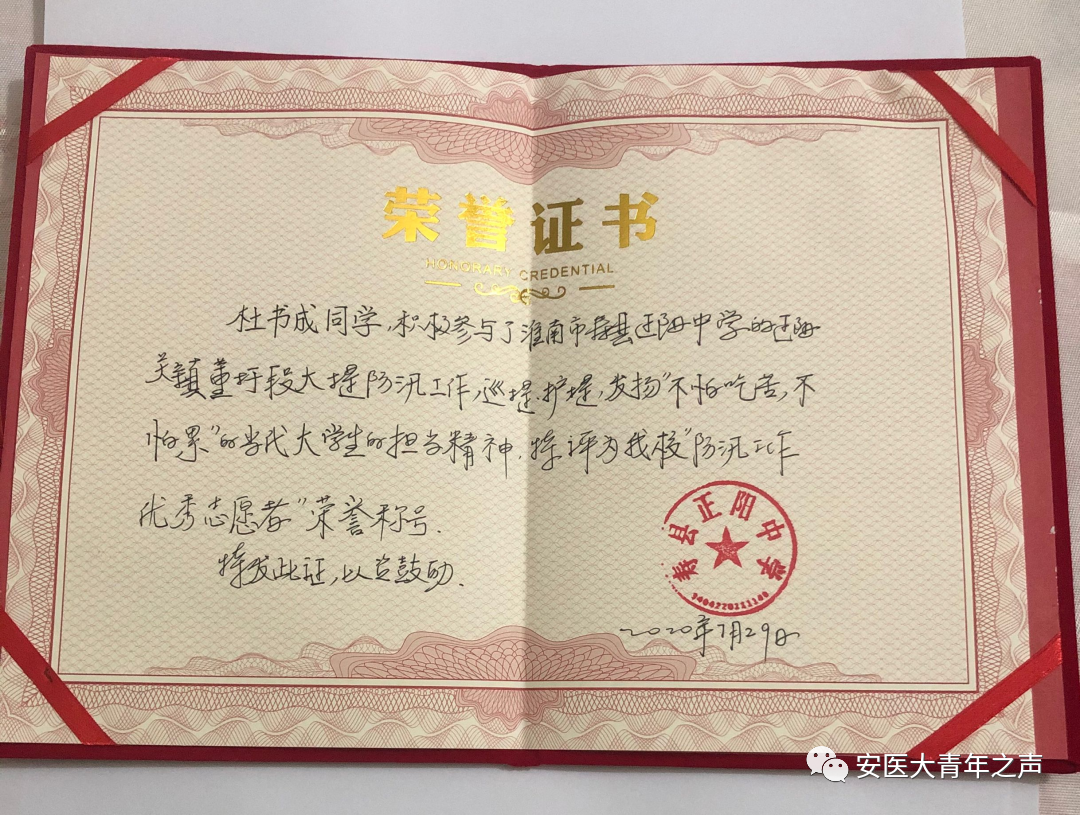 荣誉证书
HONORARY CREDENTIAL
杜书成同学,积极参与了淮南市寿县正阳中学的正阳
关镇董圩段大堤防汛工作,巡堤,护堤,发扬“不怕吃苦,不
怕累”的当代大学生的担当精神,特评为我校“防汛工作
优秀志愿者”荣誉称号.
特发此证,以兹鼓励.
寿县正阳中学
2020年7月29日
安医大青年之声